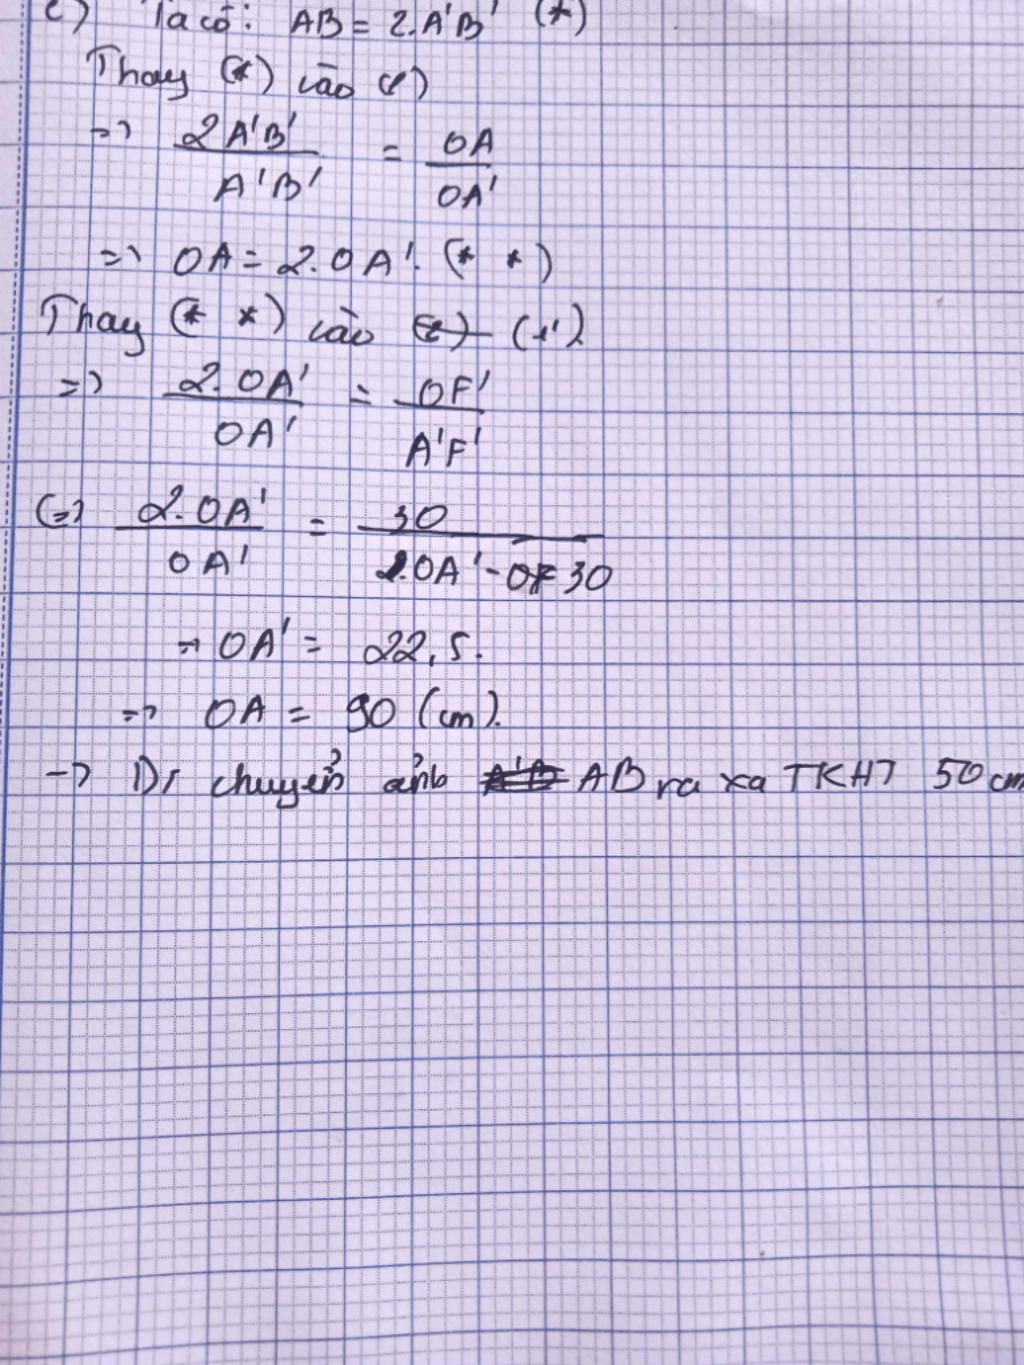 c) Ta có: AB = 2.A'B' (*)
Thay (*) vào (1)
=> 2A'B' / A'B' = OA / OA'
=> OA = 2.OA'. (* *)
Thay (* *) vào (1')
=> 2.OA' / OA' = OF' / A'F'
(=) 2.OA' / OA' = 30 / 2.OA' - 30
=> OA' = 22,5.
=> OA = 90 (cm).
-> Di chuyển ảnh AB ra xa TKHT 50 cm